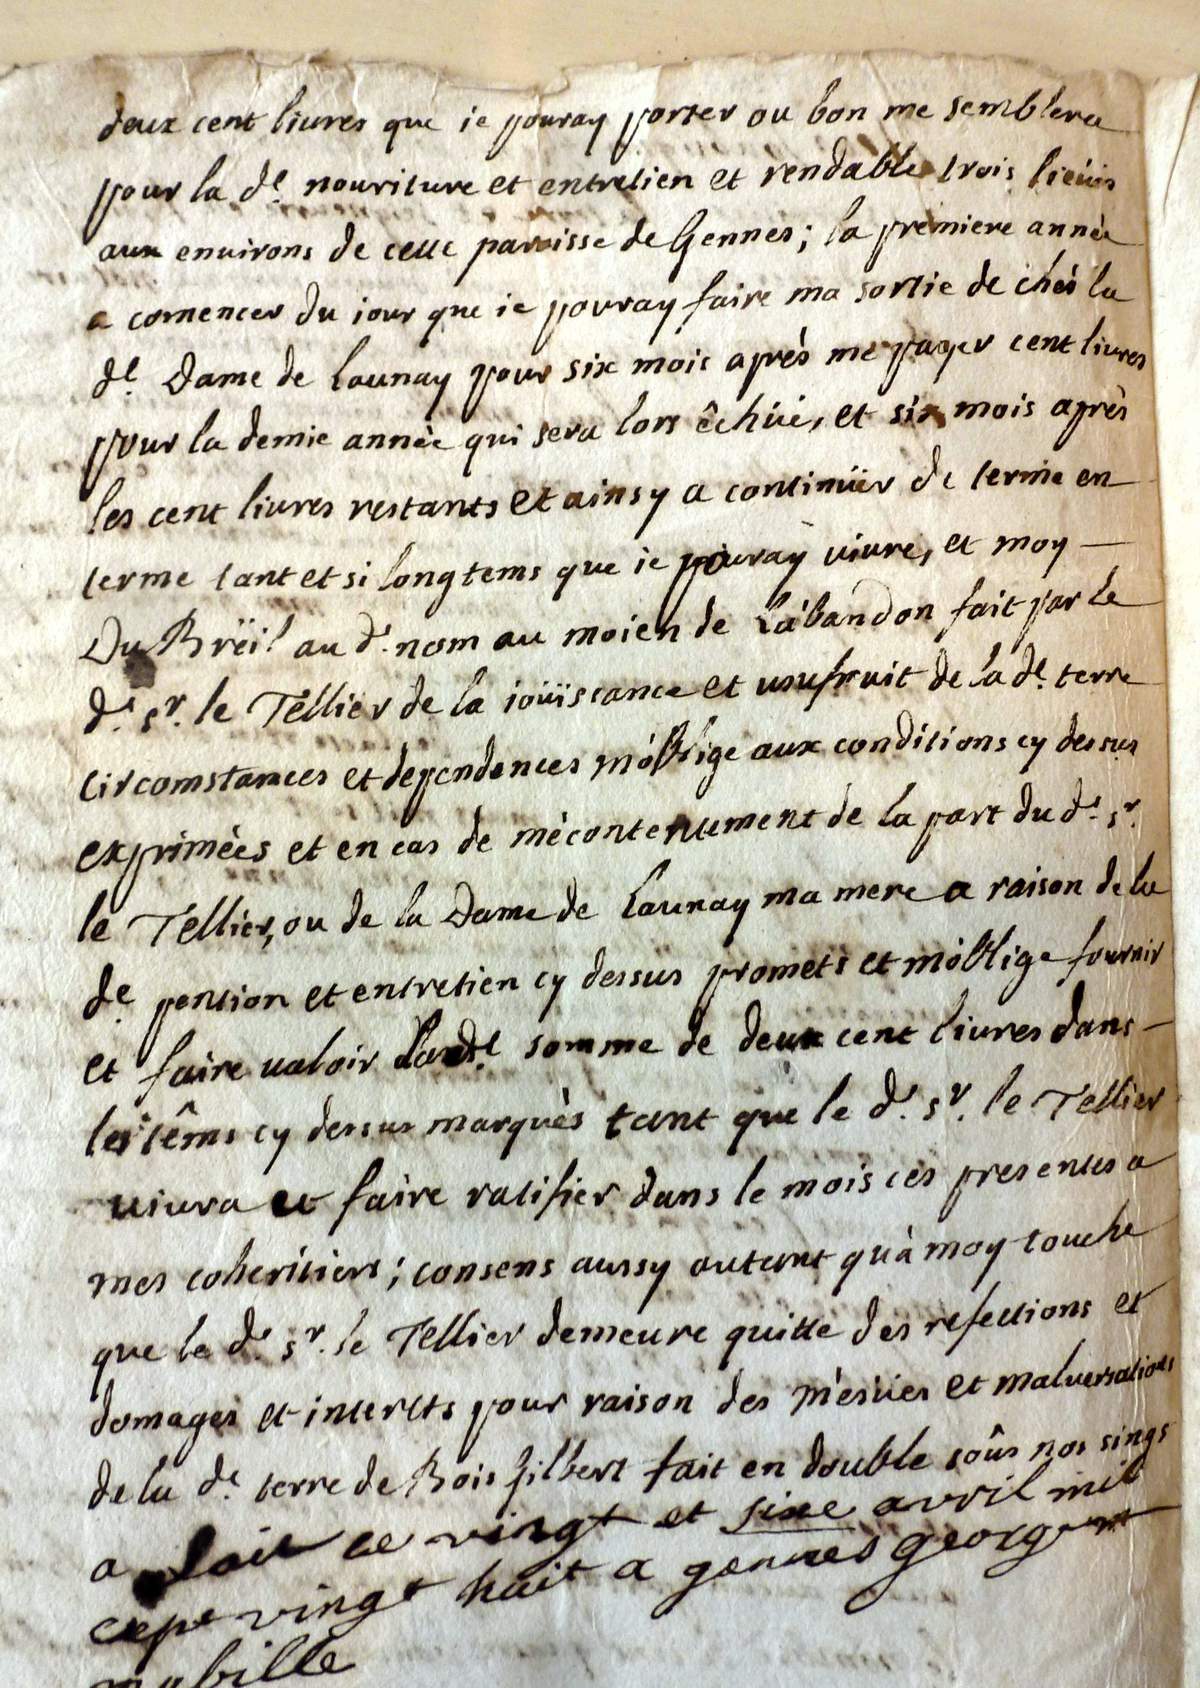 deux cent liures que ie pouray porter ou bon me semblera
pour la de. nouriture et entretien et rendable trois lieües
aux enuirons de cette paroisse de Gennes; la premiere année
a comencer du iour que ie pouray faire ma sortie de chés la
de. Dame de Launay pour six mois aprés me payer cent liures
pour la demie année qui sera lors êchüe, et six mois aprés
les cent liures restants et ainsy a continüer de terme en
terme tant et si longtems que ie pouray uiure, et moy —
Du Brëil au d. nom au moien de L'abandon fait par le
d. sr. le Tellier de la ioüiscance et usufruit de la de. terre
circomstances et dependences m'oblige aux conditions cy dessus
exprimées et en cas de mécontentement de la part du d. sr.
le Tellier, ou de la Dame de Launay ma mere a raison de la
de. pention et entretien cy dessus promets et m'oblige fournir
et faire ualoir lade. somme de deux cent liures dans —
les têms cy dessus marqués tant que le d. sr. le Tellier
uiura et faire ratifier dans le mois ces presentes a
mes coheritiers; consens aussy autant qu'à moy touche
que le d. sr. le Tellier demeure quitte des refections et
domages et interets pour raison des mésües et maluersations
de la de. terre de Bois Gilbert fait en double soûs nos sings
a ce vingt et sixe avril mil
cept vingt huit a gennes george
mabille